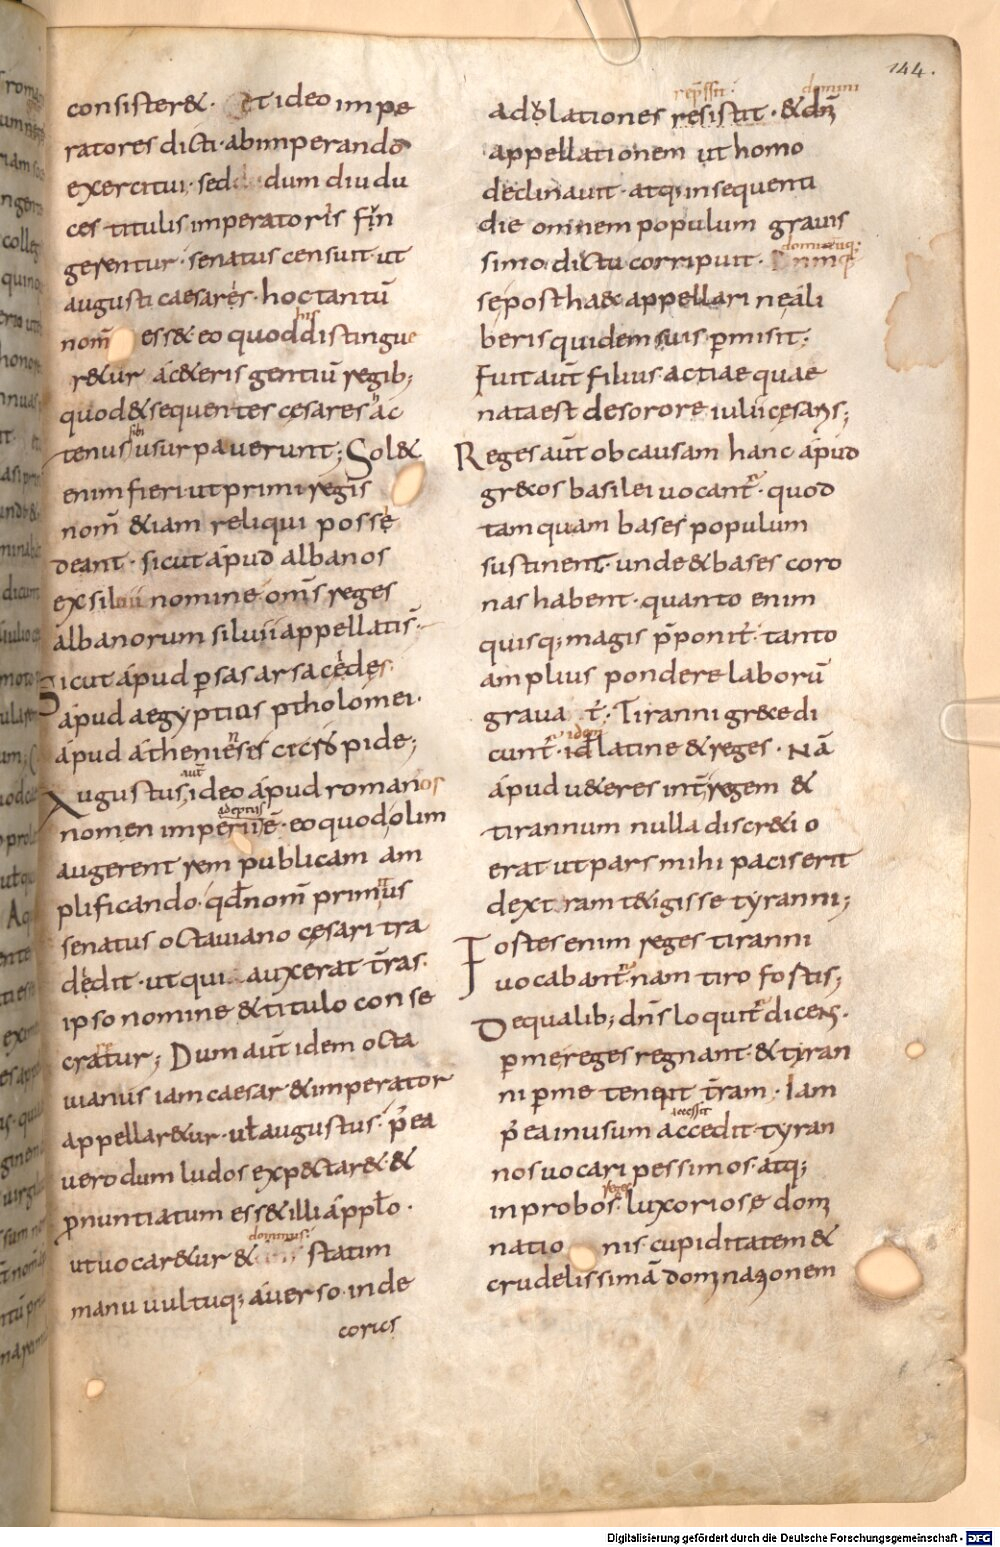 144.
consister&. Et ideo impe
ratores dicti· ab imperando
exercitui· sed dum diu du
ces titulis imperatoris
gerentur· senatus censuit· ut
augusti caesares· hoc tantū
nom̄ ess& eo quod his distingue
r&ur a c&eris gentiū regib;
quod & sequentes cęsares ac
tenus sibi usurpauerunt; Sol&
enim fieri· ut primi regis
nom̄ &iam reliqui posse
deant· sicut apud albanos
ex siluii nomine om̄s reges
albanorum siluii appellati s̄·
Sicut apud p̱sas arsacędes·
apud aegyptios ptholomei·
apud athenienses cecropide;
Augustus aut̄ ideo apud romanos
nomen imperii ē adeptus· eo quod olim
augerent rem publicam am
plificando· qđ nom̄ primus
senatus octauiano cęsari tra
dedit· ut qui auxerat t̄ras·
ipso nomine & titulo conse
cratur; Dum aut̄ idem octa
uianus iam caesar & imperator
appellar&ur· ut augustus· p̄ ea
uero dum ludos expectar& &
ꝓnuntiatum ess& illi a ppło·
ut uocar&ur & dominus· statim
manu uultuq; auerso· inde
corus
adolationes repssit resistit· & dn̄i domini
appellationem ut homo
declinauit· atq; insequenti
die omnem populum grauis
simo dictu corripuit· dominumq·
se posthac appellari ne a li
beris quidem suis p̱misit;
Fuit aut̄ filius actiae quae
nata est de sorore iulii cęsaris;
Reges aut̄ ob causam hanc apud
grecos basilei uocant̄· quod
tamquam bases populum
sustinent· unde & bases coro
nas habent· quanto enim
quisq; magis p̄ponit̄· tanto
amplius pondere laborū
graua t̄· Tiranni grece di
cunt̄· idem id latine & reges· Nā
apud u&eres int̄ regem &
tirannum nulla discr&io
erat ut pars mihi pacis erit
dextram t&igisse tyranni;
Fostes enim reges tiranni
uocabant̄· nam tiro fostis;
De qualib; dn̄s loquit̄ dicens·
p̱ me reges regnant· & tyran
ni p̱ me tenent t̄ram· Iam
p̄ ea in usum accessit accedit tyran
nos uocari pessimos atq;
inprobos reges· luxoriose domi
natio nis cupiditatem &
crudelissimā dominationem
Digitalisierung gefördert durch die Deutsche Forschungsgemeinschaft - DFG